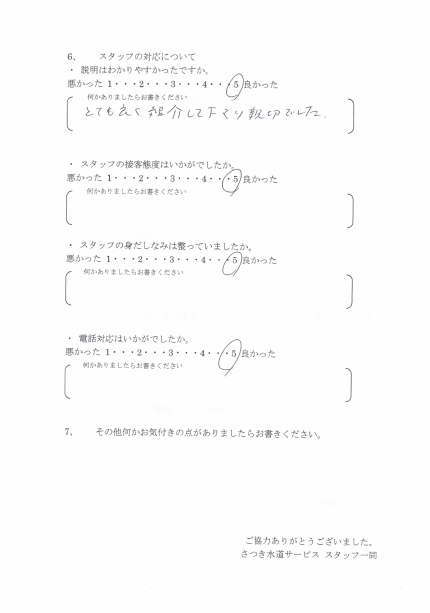 6、 スタッフの対応について
・ 説明はわかりやすかったですか。
悪かった 1・・・2・・・3・・・4・・・5 良かった
何かありましたらお書きください
とても良く紹介して下さり親切でした.
・ スタッフの接客態度はいかがでしたか。
悪かった 1・・・2・・・3・・・4・・・5 良かった
何かありましたらお書きください
・ スタッフの身だしなみは整っていましたか。
悪かった 1・・・2・・・3・・・4・・・5 良かった
何かありましたらお書きください
・ 電話対応はいかがでしたか。
悪かった 1・・・2・・・3・・・4・・・5 良かった
何かありましたらお書きください
7、 その他何かお気付きの点がありましたらお書きください。
ご協力ありがとうございました。
さつき水道サービス スタッフ一同